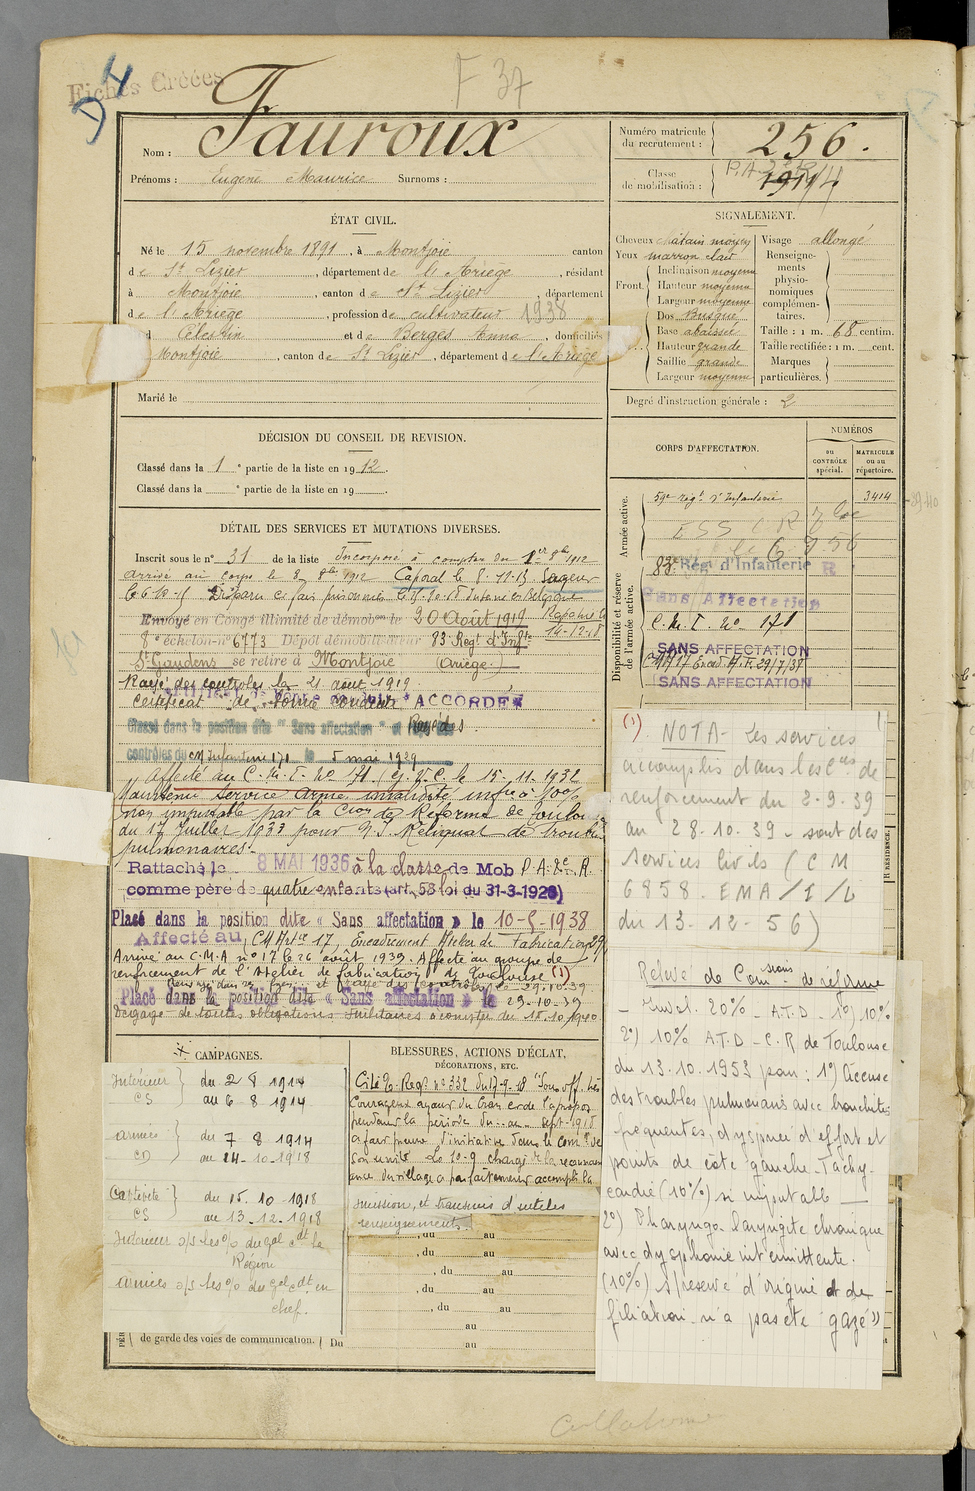 Fiches Créées
D4
F 37
Nom : Fauroux
Prénoms : Eugène Maurice Surnoms :
Numéro matricule du recrutement : 256.
Classe de mobilisation : 1911
ÉTAT CIVIL.
Né le 15 novembre 1891, à Montjoie canton
de St Lizier, département de l'Ariège, résidant
à Montjoie, canton de St Lizier, département
de l'Ariège, profession de cultivateur 1938
d Célestin et de Berges Anna, domiciliés
Montjoie, canton de St Lizier, département de l'Ariège
Marié le
SIGNALEMENT.
Cheveux châtain moyen
Yeux marron clair
Front. Inclinaison moyenne
Hauteur moyenne
Largeur moyenne
Dos Busqué
Base abaissée
Hauteur grande
Saillie grande
Largeur moyenne
Visage allongé
Renseignements physionomiques complémentaires.
Taille : 1 m. 68 centim.
Taille rectifiée : 1 m. cent.
Marques particulières.
Degré d'instruction générale : 2
DÉCISION DU CONSEIL DE REVISION.
Classé dans la 1e partie de la liste en 1912.
Classé dans la e partie de la liste en 19 .
CORPS D'AFFECTATION.
NUMÉROS
au CONTRÔLE spécial.
MATRICULE ou au répertoire.
Armée active.
59e régt d'Infanterie 3414
Disponibilité et réserve de l'armée active.
83e Régt d'Infanterie R
Sans Affectation
C.M.I. No 171
SANS AFFECTATION
SANS AFFECTATION
DÉTAIL DES SERVICES ET MUTATIONS DIVERSES.
Inscrit sous le n° 31 de la liste Incorporé à compter du 1er 8bre 1912
arrivé au corps le 8 8bre 1912 Caporal le 8.11.13 Sergent
Envoyé en Congé illimité de démobon le 20 Août 1919
8e échelon n° 6773 Dépôt démobilisateur 83 Régt d'Infie
St Gaudens se retire à Montjoie (Ariège.)
Rayé des contrôles le 21 août 1919.
Certificat de Bonne conduite ACCORDÉ
Classé dans la position dite "Sans affectation" et Rayé des
contrôles du CM Infanterie 171 le 5 mai 1929
Affecté au C.M.I. No 171 (J.V.C. le 15-11-1932
Maintenu Service armé, invalidité infre à 10%
non imputable par la Cion de Réforme de Toulouse
du 17 Juillet 1933 pour
pulmonaires.
Rattaché le 8 MAI 1936 à la classe de Mob P.A. 2e R.
comme père de quatre enfants (art. 58 loi du 31-3-1928)
Placé dans la position dite « Sans affectation » le 10-5-1938
Affecté au CM Artie 17, Encadrement Atelier de Fabrication 29
Arrivé au C.M.A n° 17 le 26 août 1939. Affecté au groupe de
renforcement de l'Atelier de fabrication de Toulouse (1)
Placé dans la position dite « Sans affectation » le 29-10-39
Dégagé de toutes obligations militaires à compter du 15.10.1940
(1). NOTA - Les services
accomplis dans les Cies de
renforcement du 2-9-39
au 28-10-39 - sont des
services civils (CM
6858. EMA/1/L
du 13-12-56)
Relevé de Comssions de réforme
- Inval. 20% - A.T.D - 1°) 10%
2°) 10% A.T.D - C.R de Toulouse
du 13.10.1953 pour : 1°) Accuse
des troubles pulmonaires avec bronchites
fréquentes, dyspnée d'effort et
points de côté gauche. Tachy-
cardie (10%) si imputable
2°) Pharyngo laryngite chronique
avec dysphonie intermittente.
(10%) S/réserve d'origine et de
filiation. n'a pas été "gazé"
CAMPAGNES.
Intérieur CS du 2 8 1914
au 6-8-1914
armées CD du 7 8 1914
au 14-10-1918
Captivité CS du 15.10.1918
au 13.12.1918
BLESSURES, ACTIONS D'ÉCLAT,
DÉCORATIONS, ETC.
Cité O. Régt n° 332 du 17-9-18 "Sous off. très
Courageux ayant du cran et de l'à propos
mission, et transmis d'utiles
renseignements.
, du au
, du au
, du au
, du au
, du au
au
de garde des voies de communication. Du au